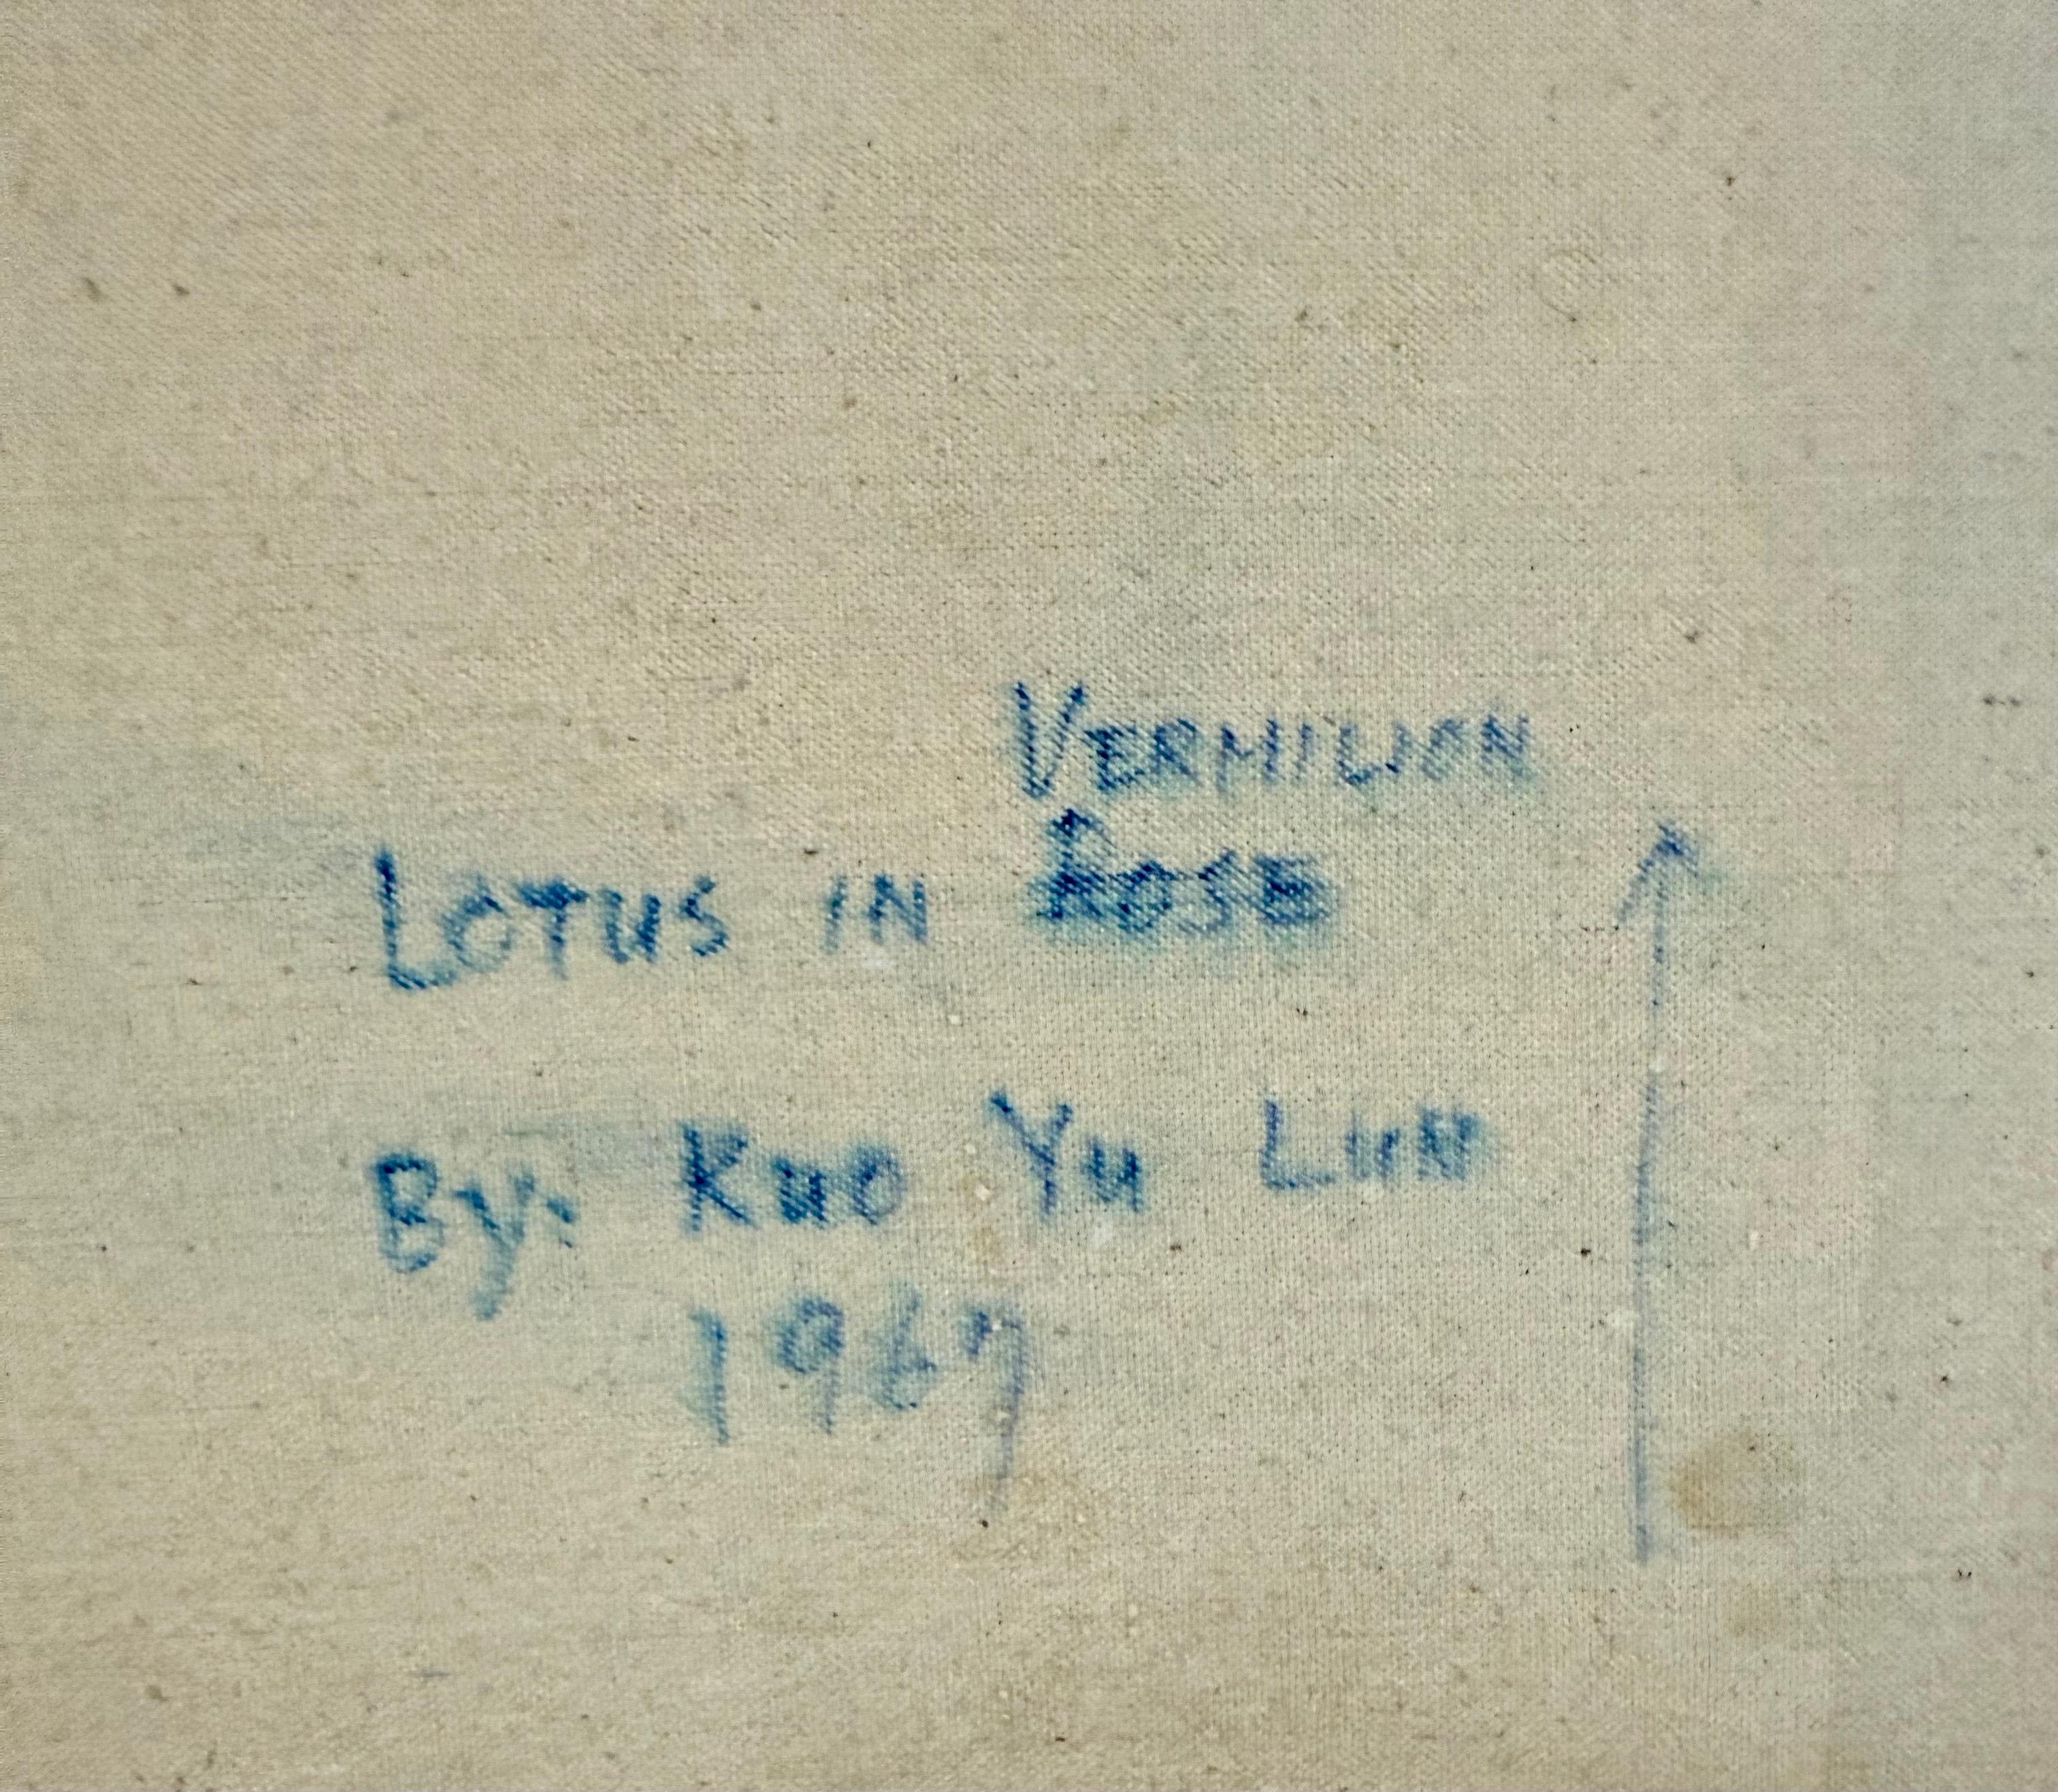 VERMILION
LOTUS IN ROSE
By: KUO YU LUN
1967